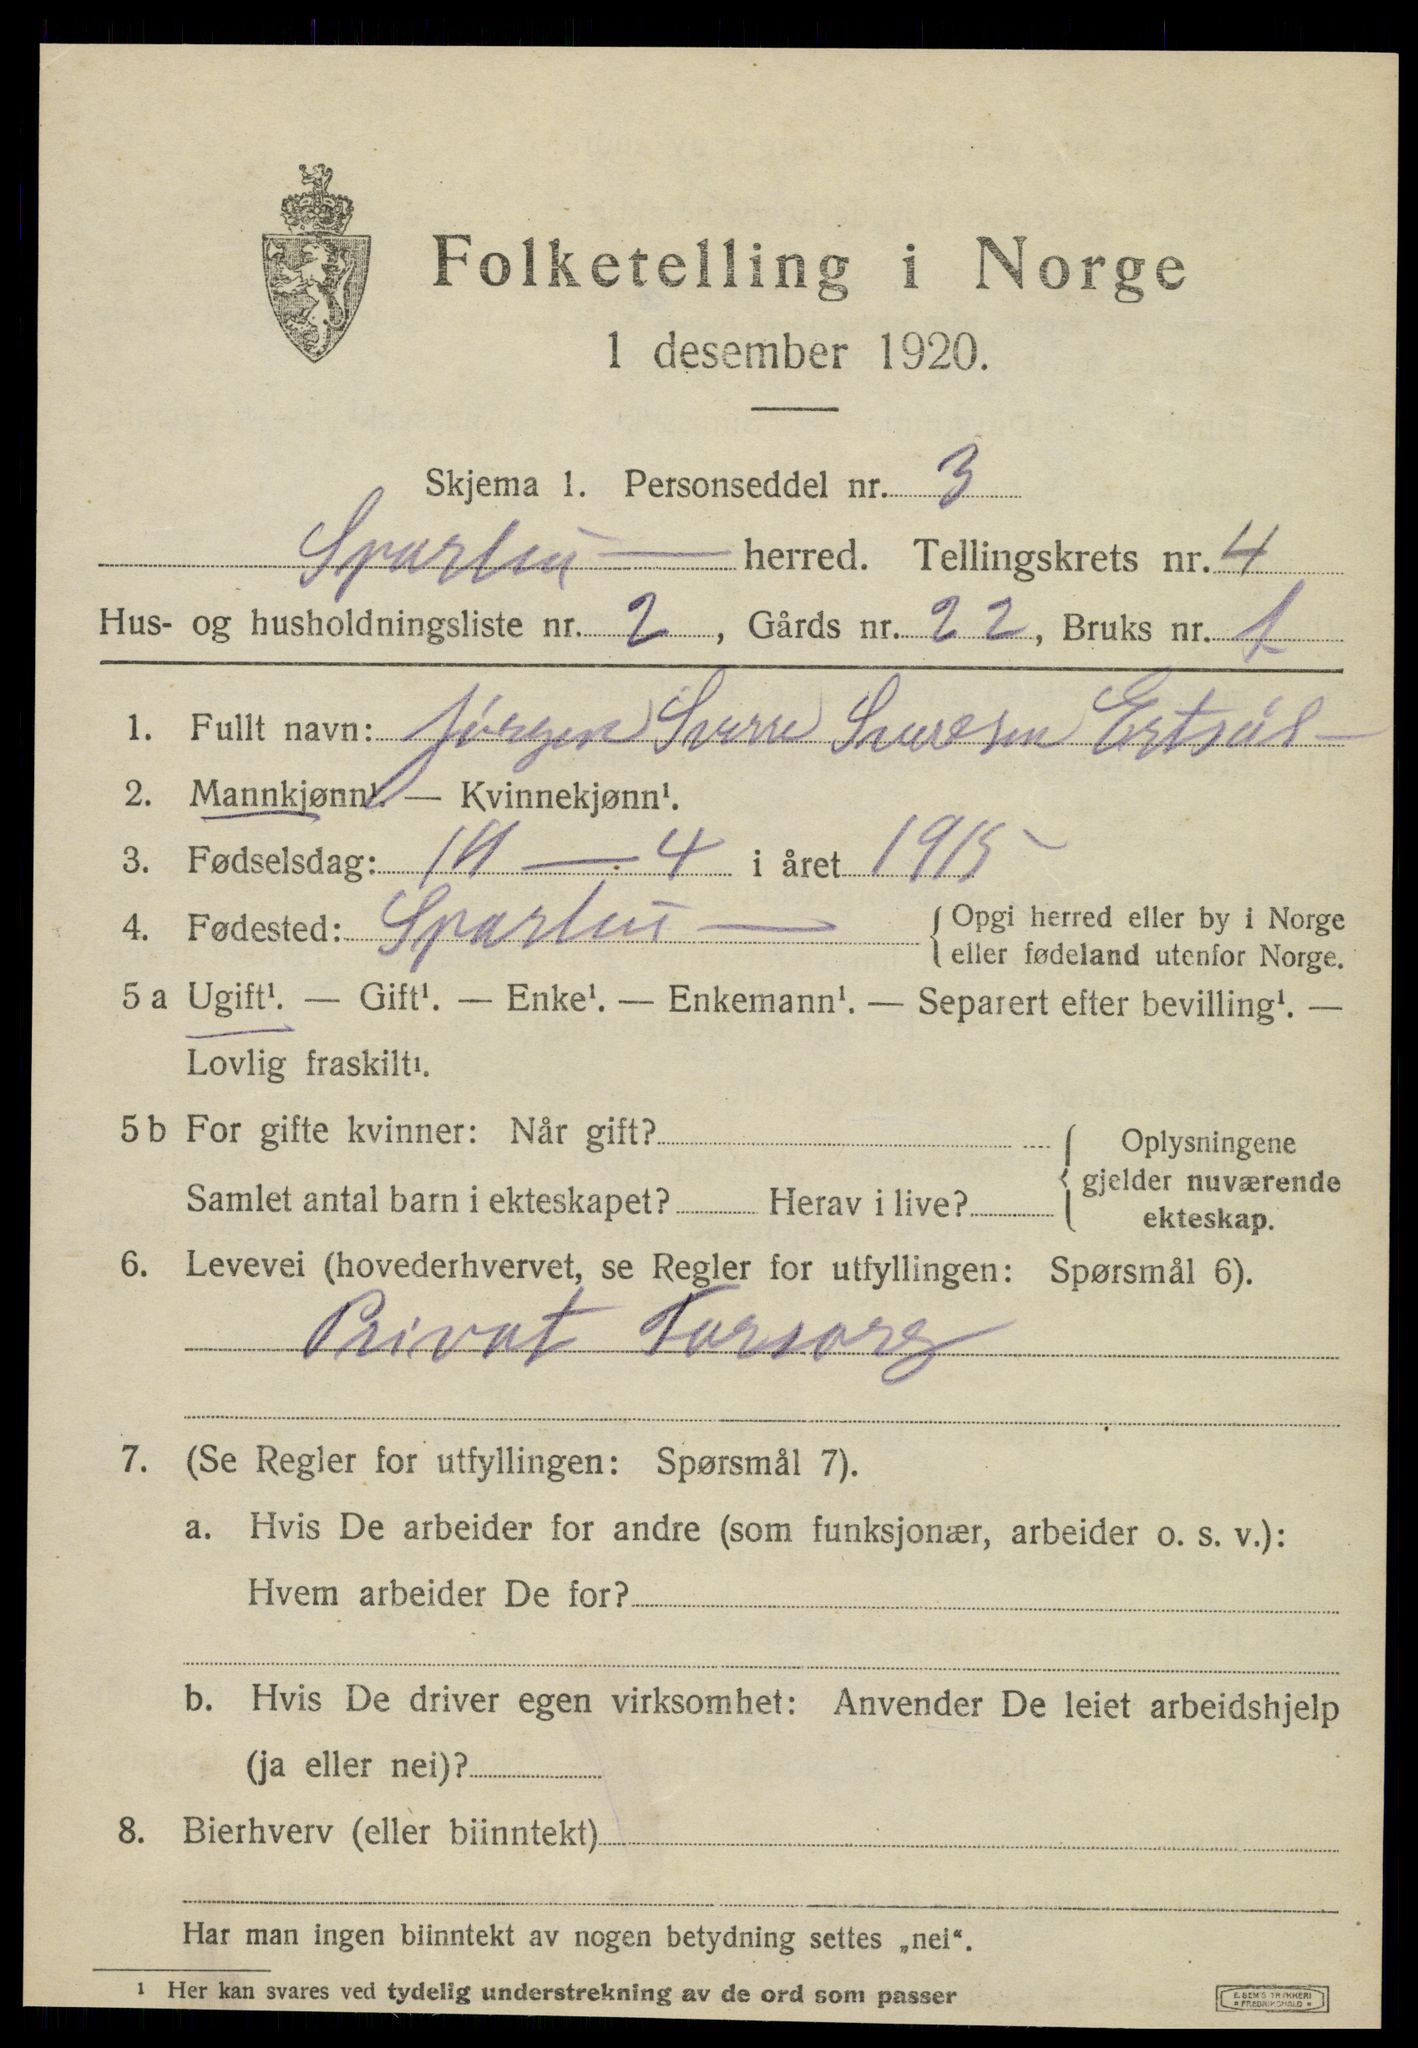 Folketelling i Norge
1 desember 1920.
Skjema 1. Personseddel nr. 3
Sparbu — herred. Tellingskrets nr. 4
Hus- og husholdningsliste nr. 2, Gårds nr. 22, Bruks nr. 1
1. Fullt navn: Jørgen Sverre Sverresen
2. Mannkjønn¹. — Kvinnekjønn¹.
3. Fødselsdag: — 4 i året 1915
4. Fødested: Sparbu — { Opgi herred eller by i Norge
eller fødeland utenfor Norge.
5 a Ugift¹. — Gift¹. — Enke¹. — Enkemann¹. — Separert efter bevilling¹. —
Lovlig fraskilt¹.
5 b For gifte kvinner: Når gift? { Oplysningene
gjelder nuværende
Samlet antal barn i ekteskapet? Herav i live? ekteskap.
6. Levevei (hovederhvervet, se Regler for utfyllingen: Spørsmål 6).
Privat Forsorg
7. (Se Regler for utfyllingen: Spørsmål 7).
a. Hvis De arbeider for andre (som funksjonær, arbeider o. s. v.):
Hvem arbeider De for?
b. Hvis De driver egen virksomhet: Anvender De leiet arbeidshjelp
(ja eller nei)?
8. Bierhverv (eller biinntekt)
Har man ingen biinntekt av nogen betydning settes „nei“.
¹ Her kan svares ved tydelig understrekning av de ord som passer
E. SEM'S TRYKKERI
FREDRIKSHALD